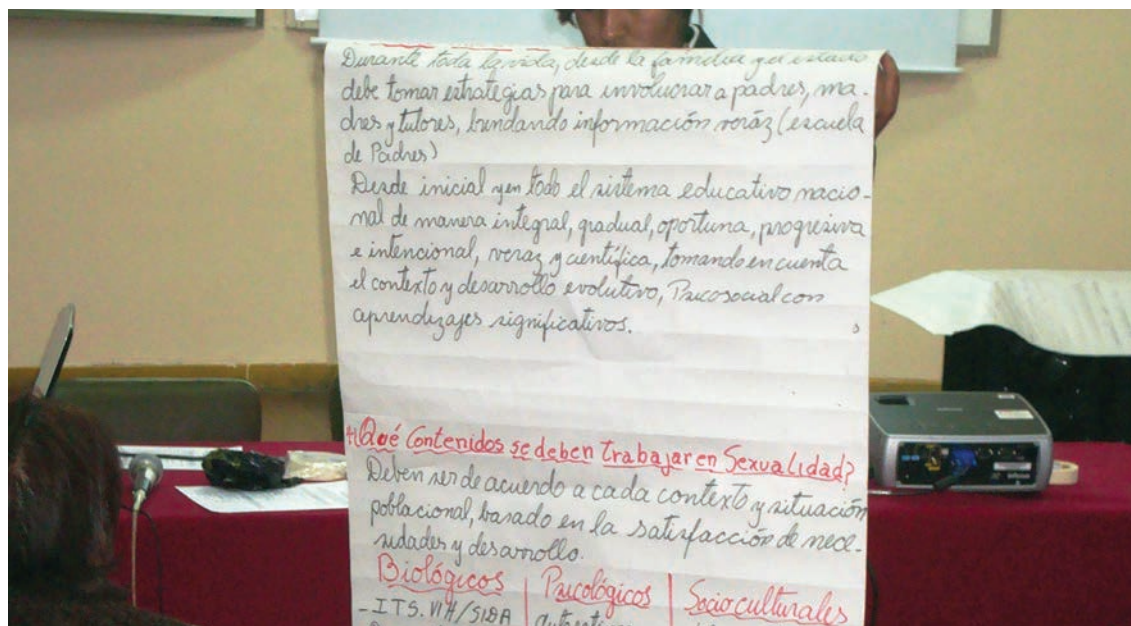 Durante toda la vida, desde la familia y el estado
debe tomar estrategias para involucrar a padres, ma-
dres y tutores, brindando información veráz (escuela
de Padres)
Desde inicial y en todo el sistema educativo nacio-
nal de manera integral, gradual, oportuna, progresiva
e intencional, veraz y científica, tomando en cuenta
el contexto y desarrollo evolutivo, Psicosocial con
aprendizajes significativos.
Qué Contenidos se deben trabajar en Sexualidad?
Deben ser de acuerdo a cada contexto y situación
poblacional, basado en la satisfacción de nece-
sidades y desarrollo.
Biológicos Psicológicos Socioculturales
- ITS. VIH/SIDA